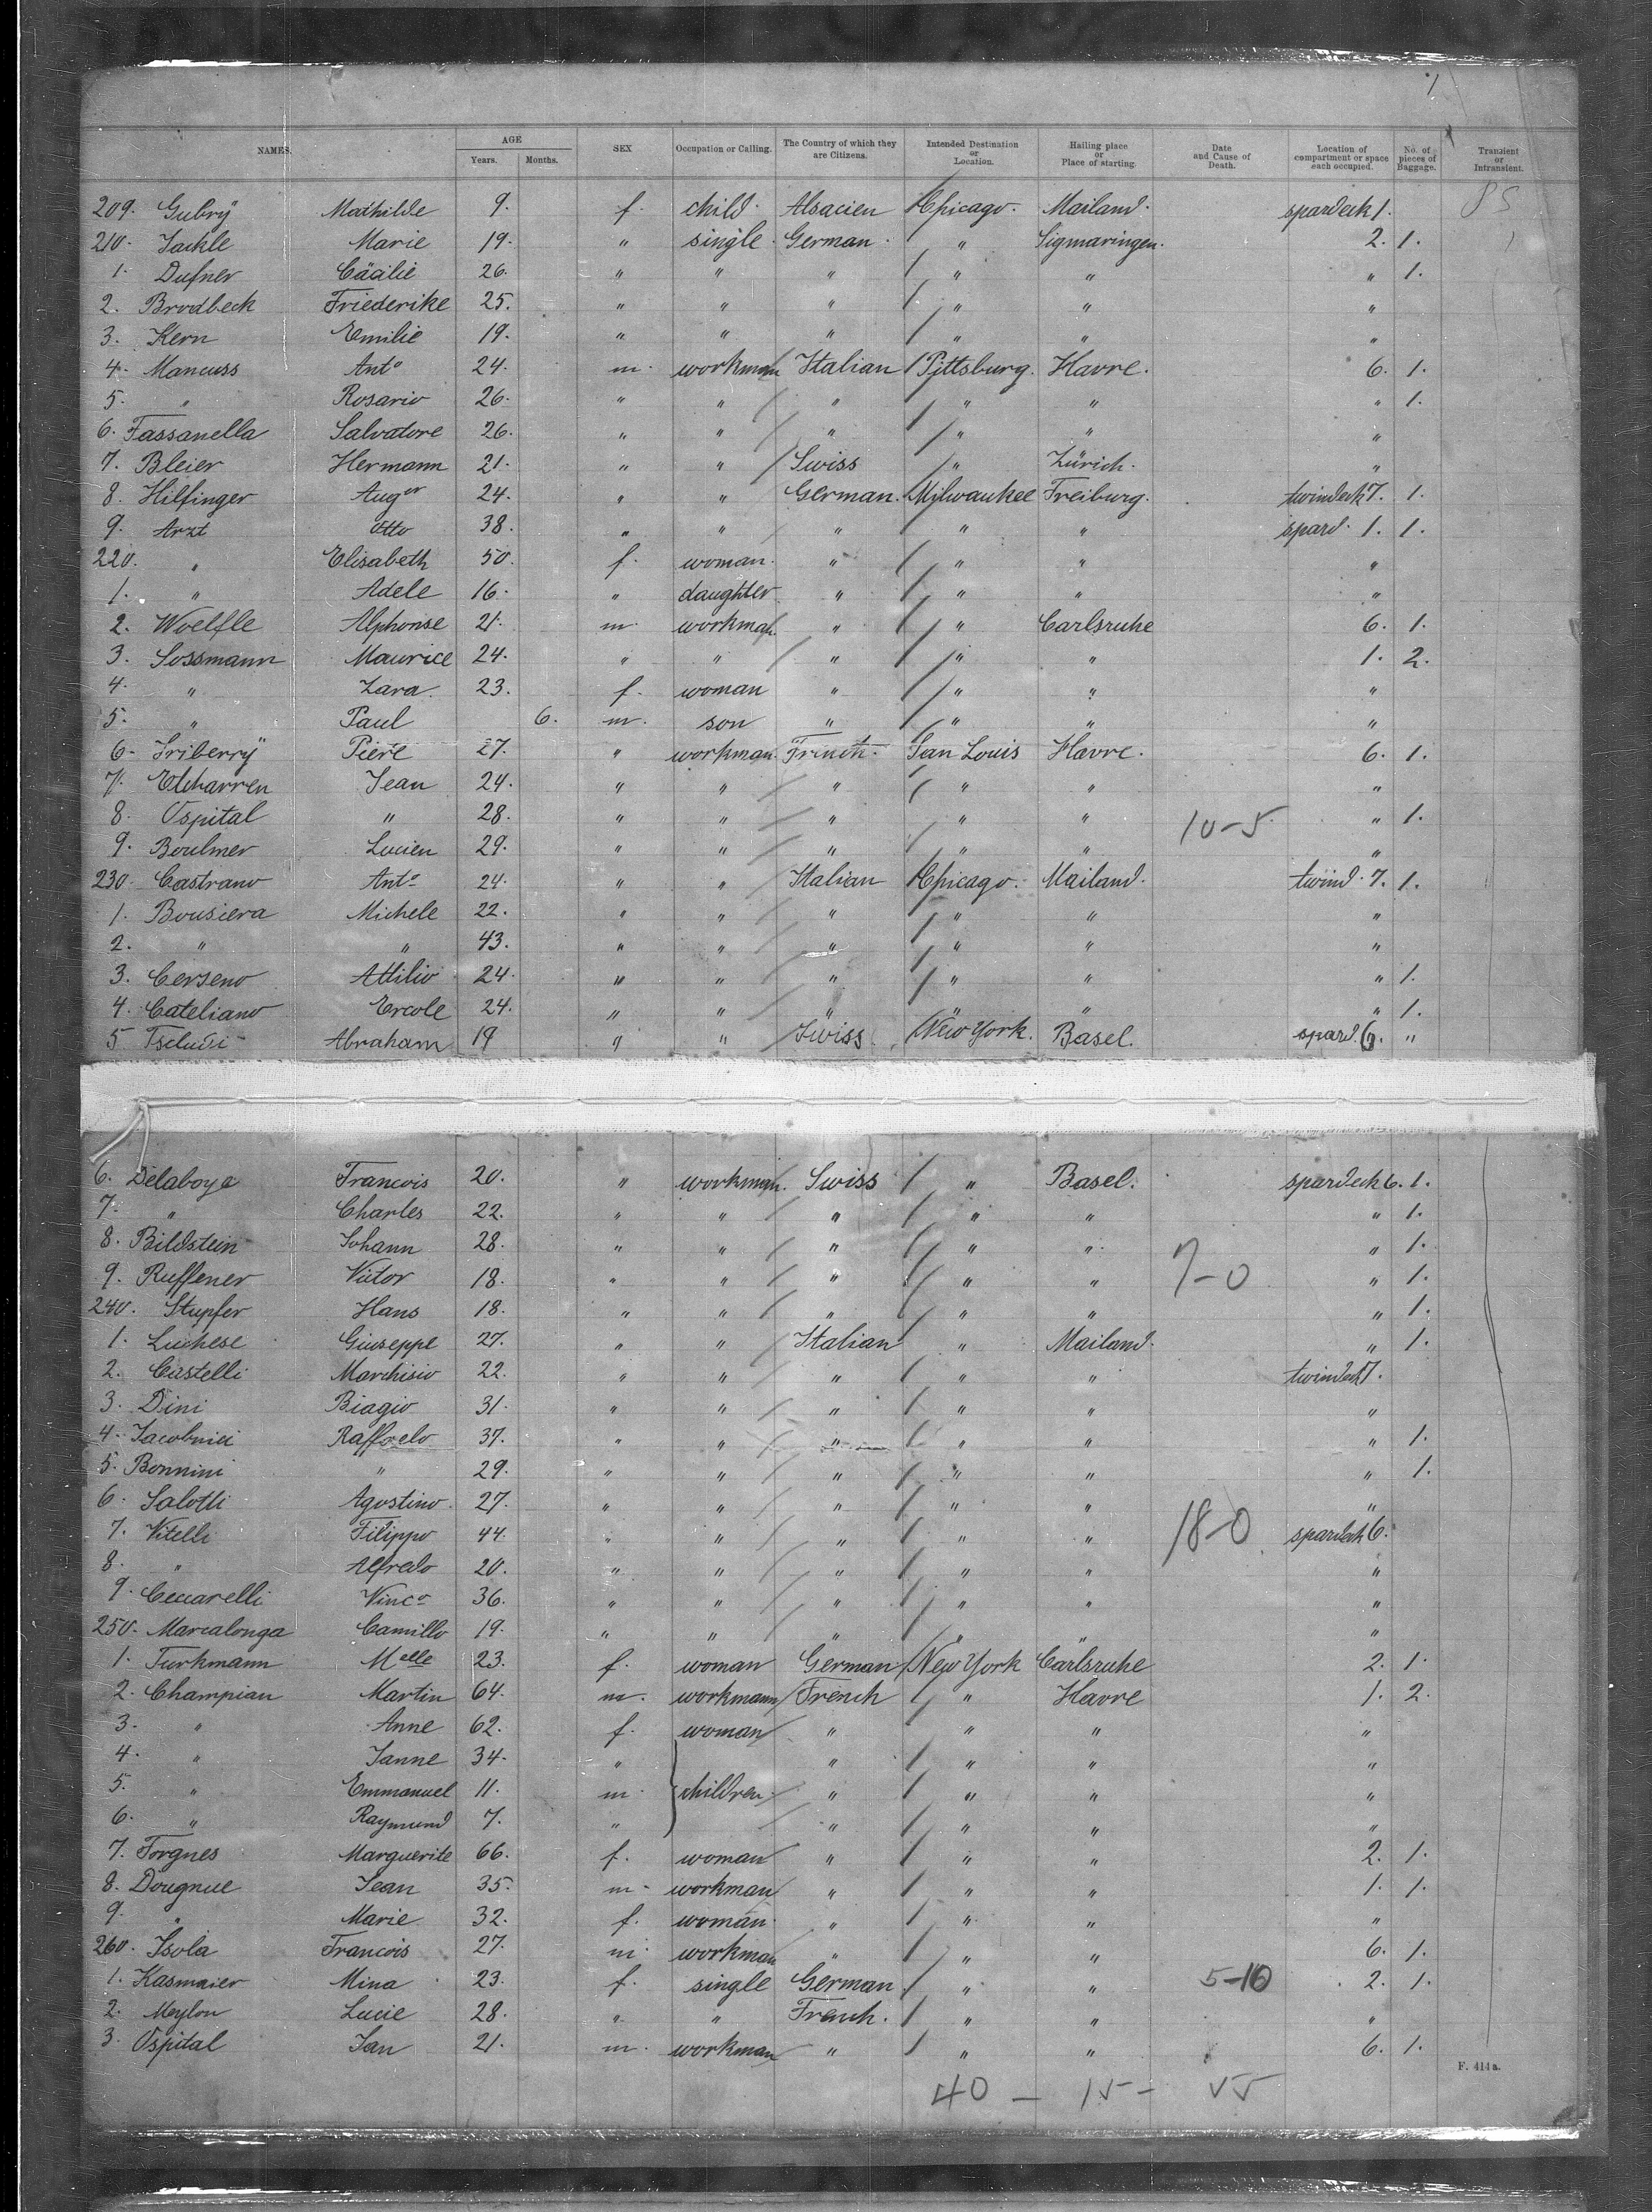 NAMES. AGE Years. Months. SEX Occupation or Calling. The Country of which they are Citizens. Intended Destination or Location. Hailing place or Place of starting. Date and Cause of Death. Location of compartment or space each occupied. No. of pieces of Baggage. Transient or Intransient.
209. Gubrÿ Mathilde 9. f. child. Alsacien Chicago. Mailand. spardeck 1.
210. Jackle Marie 19. " single. German. " Sigmaringen. 2. 1.
1. Dufner Cäcilie 26. " " " " " " 1.
2. Brodbeck Friederike 25. " " " " " "
3. Kern Emilie 19. " " " " " "
4. Mancuss Anto 24. m. workman Italian Pittsburg. Havre. 6. 1.
5. " Rosario 26. " " " " " " 1.
6. Fassanella Salvatore 26. " " " " " "
7. Bleier Hermann 21. " " Swiss " Zürich. "
8. Hilfinger Auger 24. " " German. Milwaukee Freiburg. twindeck 7. 1.
9. Arzt Otto 38. " " " " " spard. 1. 1.
220. " Elisabeth 50. f. woman. " " " "
1. " Adele 16. " daughter " " " "
2. Woelfle Alphonse 21. m. workman. " " Carlsruhe 6. 1.
3. Sossmann Maurice 24. " " " " " 1. 2.
4. " Zara. 23. f. woman " " " "
5. " Paul 6. m. son " " " "
6. Iriberrÿ Piere 27. " workman. French. San Louis Havre. 6. 1.
7. Etcharren Jean 24. " " " " " "
8. Ospital " 28. " " " " " 10-5 " 1.
9. Boulmer Lucien 29. " " " " " "
230. Castrano Anto 24. " " Italian Chicago. Mailand. twind. 7. 1.
1. Bousiera Michele 22. " " " " " "
2. " " 43. " " " " " "
3. Cerseno Attilio 24. " " " " " " 1.
4. Cateliano Ercole 24. " " " " " " 1.
5 Tschudi Abraham 19 " " Swiss. New York. Basel. spard. 6. "
6. Delaboye Francois 20. " workman. Swiss " Basel. spardeck 6. 1.
7. " Charles 22. " " " " " " 1.
8. Bildstein Johann 28. " " " " " " 1.
9. Ruffener Victor 18. " " " " " 7-0 " 1.
240. Stupfer Hans 18. " " " " " " 1.
1. Luchese Giuseppe 27. " " Italian " Mailand. " 1.
2. Castelli Marchisio 22. " " " " " twindeck 7.
3. Dini Biagio 31. " " " " " "
4. Jacobnici Raffaelo 37. " " " " " " 1.
5. Bonnini " 29. " " " " " " 1.
6. Salotti Agostino. 27. " " " " " "
7. Vitelli Filippo 44. " " " " " 18-0 spardeck 6.
8. " Alfredo 20. " " " " " "
9. Ceccarelli Vinco 36. " " " " " "
250. Marcalonga Camillo 19. " " " " " "
1. Turkmann Melle 23. f. woman German New York Carlsruhe 2. 1.
2. Champian Martin 64. m. workmann French " Havre 1. 2.
3. " Anne 62. f. woman " " " "
4. " Janne 34. " " " " "
5. " Emmanuel 11. m. children. " " " "
6. " Raymund 7. " " " " "
7. Forgnes Marguerite 66. f. woman " " " 2. 1.
8. Dougnue Jean 35. m. workman " " " 1. 1.
9. " Marie 32. f. woman. " " " "
260. Isola Francois 27. m. workman " " " 6. 1.
1. Kasmaier Mina 23. f. single German " " 5-10 2. 1.
2. Meylon Lucie 28. " " French. " " "
3. Ospital Jan 21. m. workman " " " 6. 1.
F. 414 a.
40 - 15 - 55